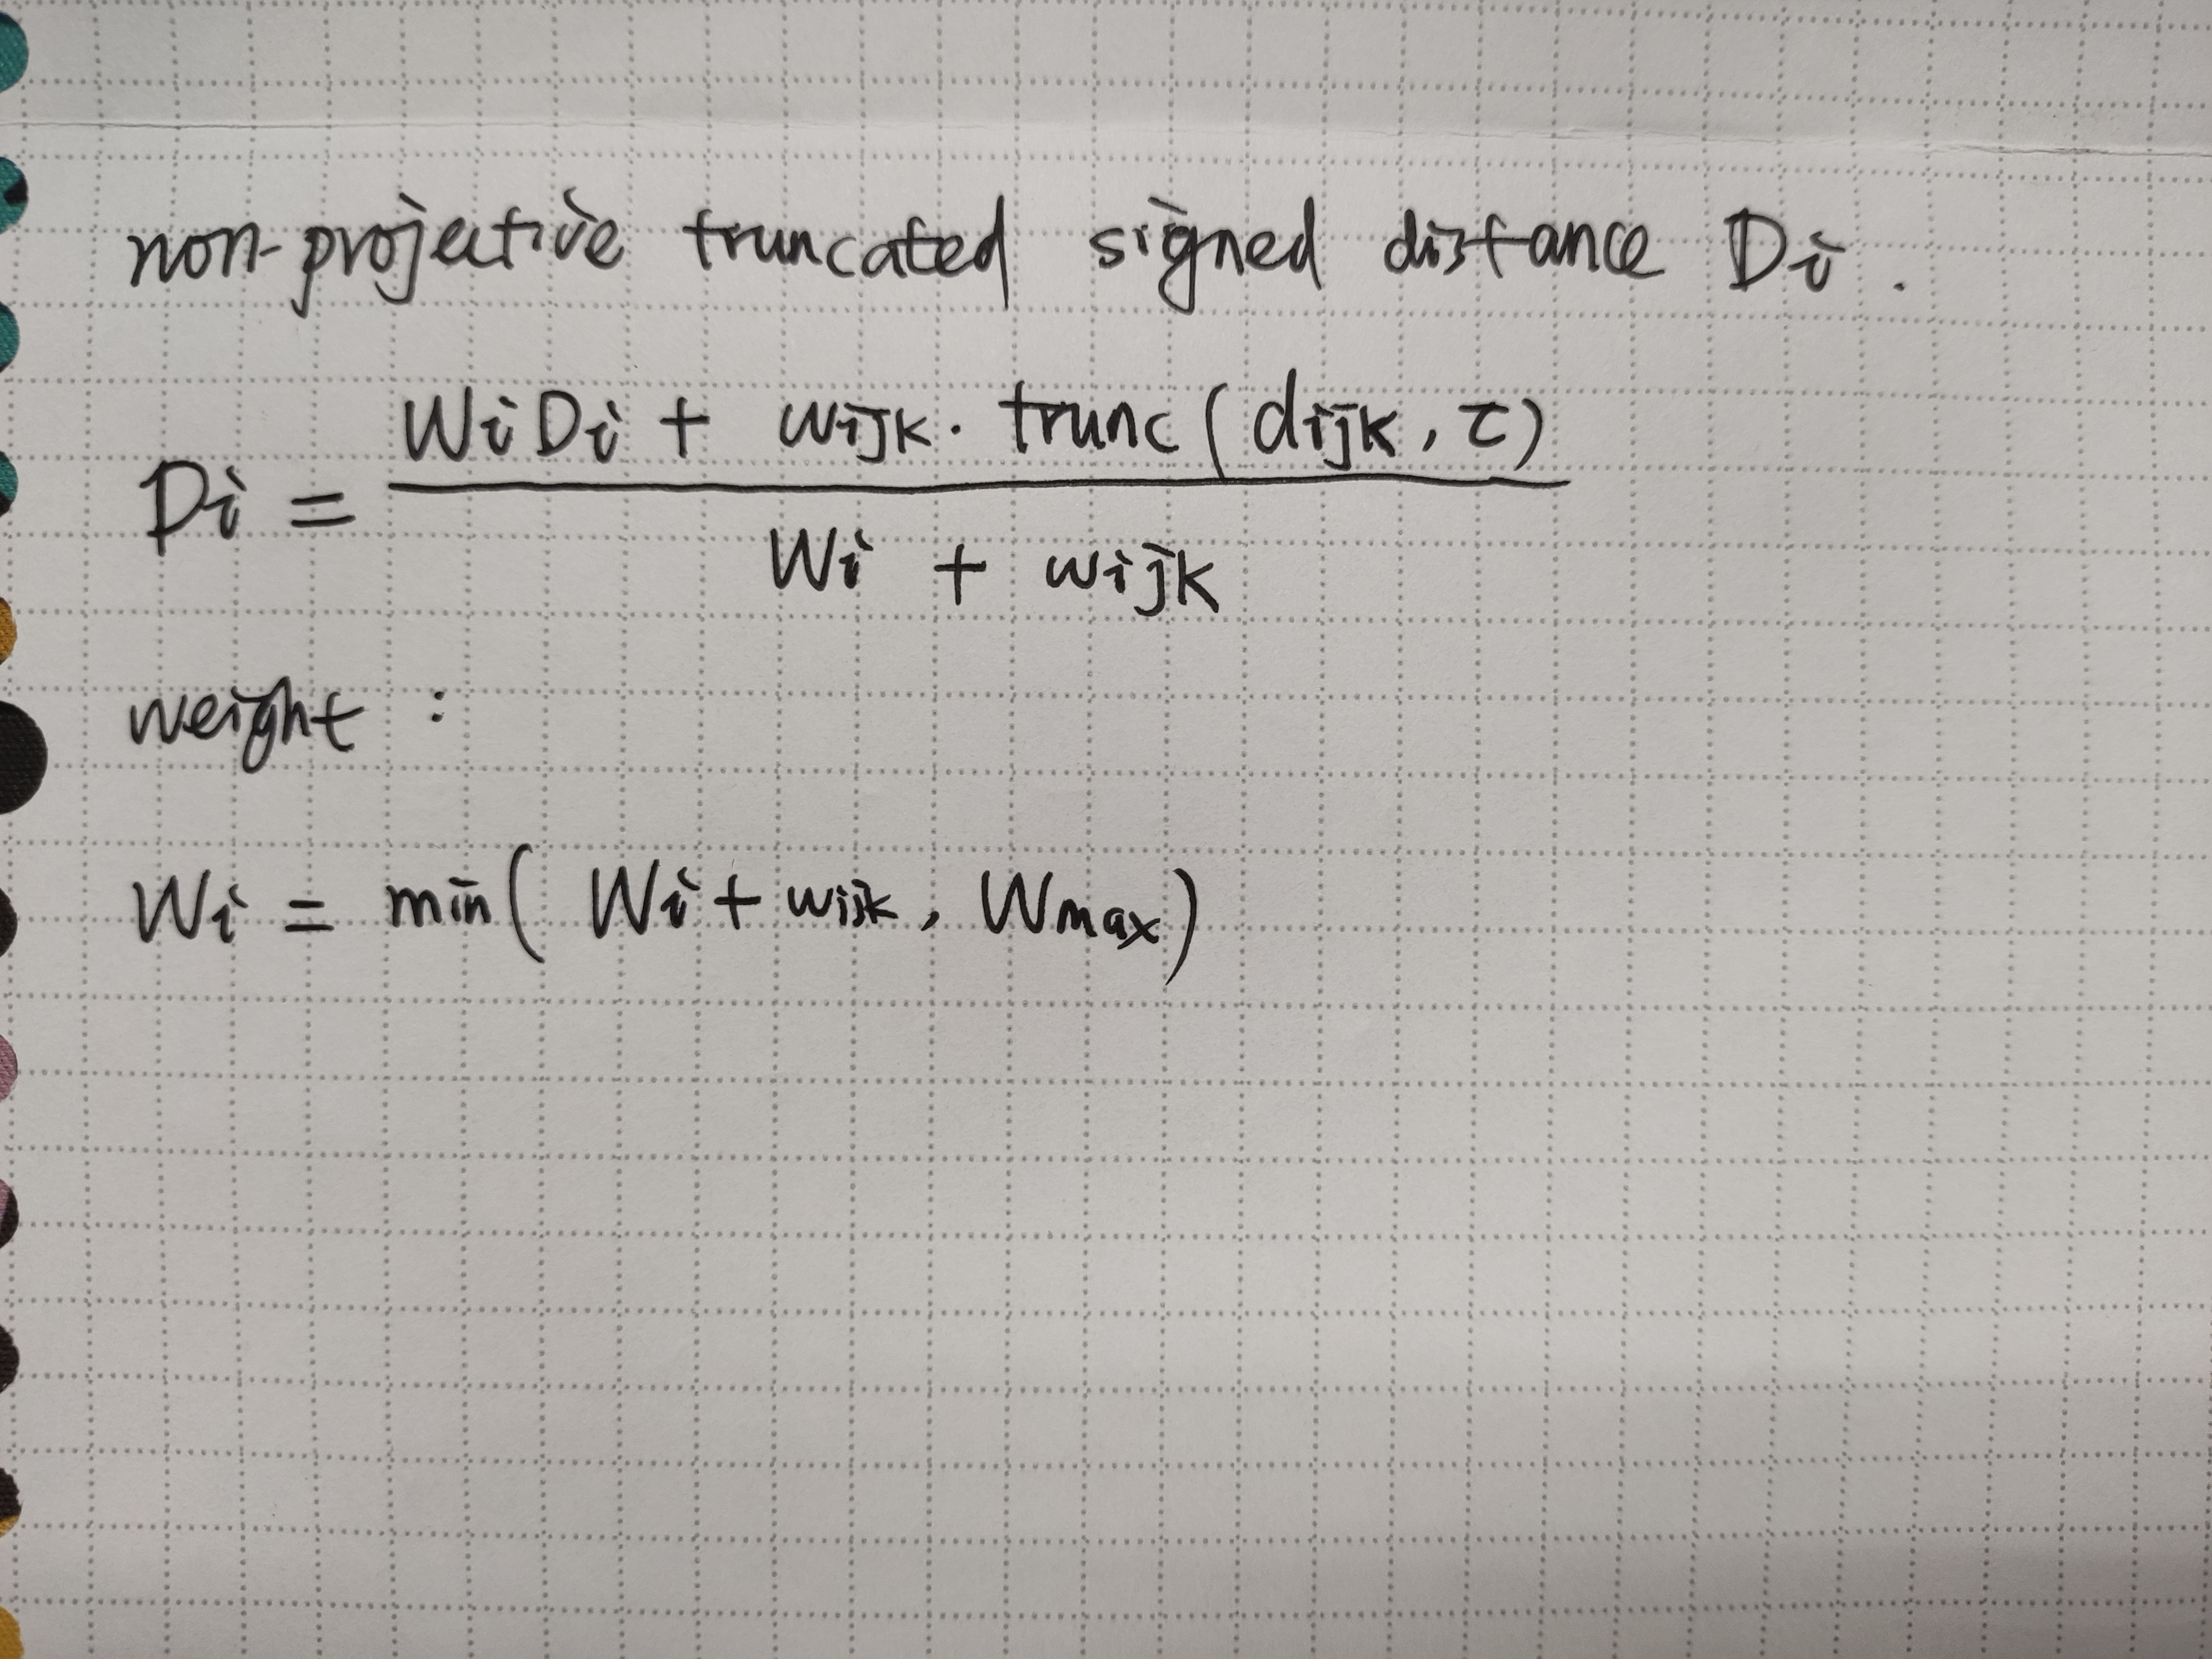 non-projective truncated signed distance Di.
Di = (WiDi + wijk · trunc(dijk, τ)) / (Wi + wijk)
weight :
Wi = min( Wi + wijk , Wmax)